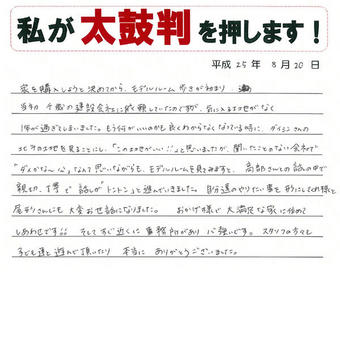 私が太鼓判を押します!
平成 25年 8月 20日
家を購入しようと決めてから、モデルルーム歩きが始まり
当初 の建設会社に依頼していたのですが、気に入る土地がなく
1年が過ぎてしまいました。もう何がいいのかも良くわからなくなっている時に、 さんの
土地を見ることにし、「この土地がいい!!」と思いましたが、聞いたことのない会社で
"ダメかな～"なんて思いながらも、モデルルームを見てみますと、 さんとの話の中で
親切、丁寧で話しが「トントン」と進んでいきました。自分達のやりたい事を形にしてくれ様と
さんにも大変お世話になりました。おかげ様で大満足な家に住めて
しあわせです!! そしてすぐ近くに事務所があり心強いです。スタッフの方々も
子ども達と遊んで頂いたり 本当に ありがとうございました。